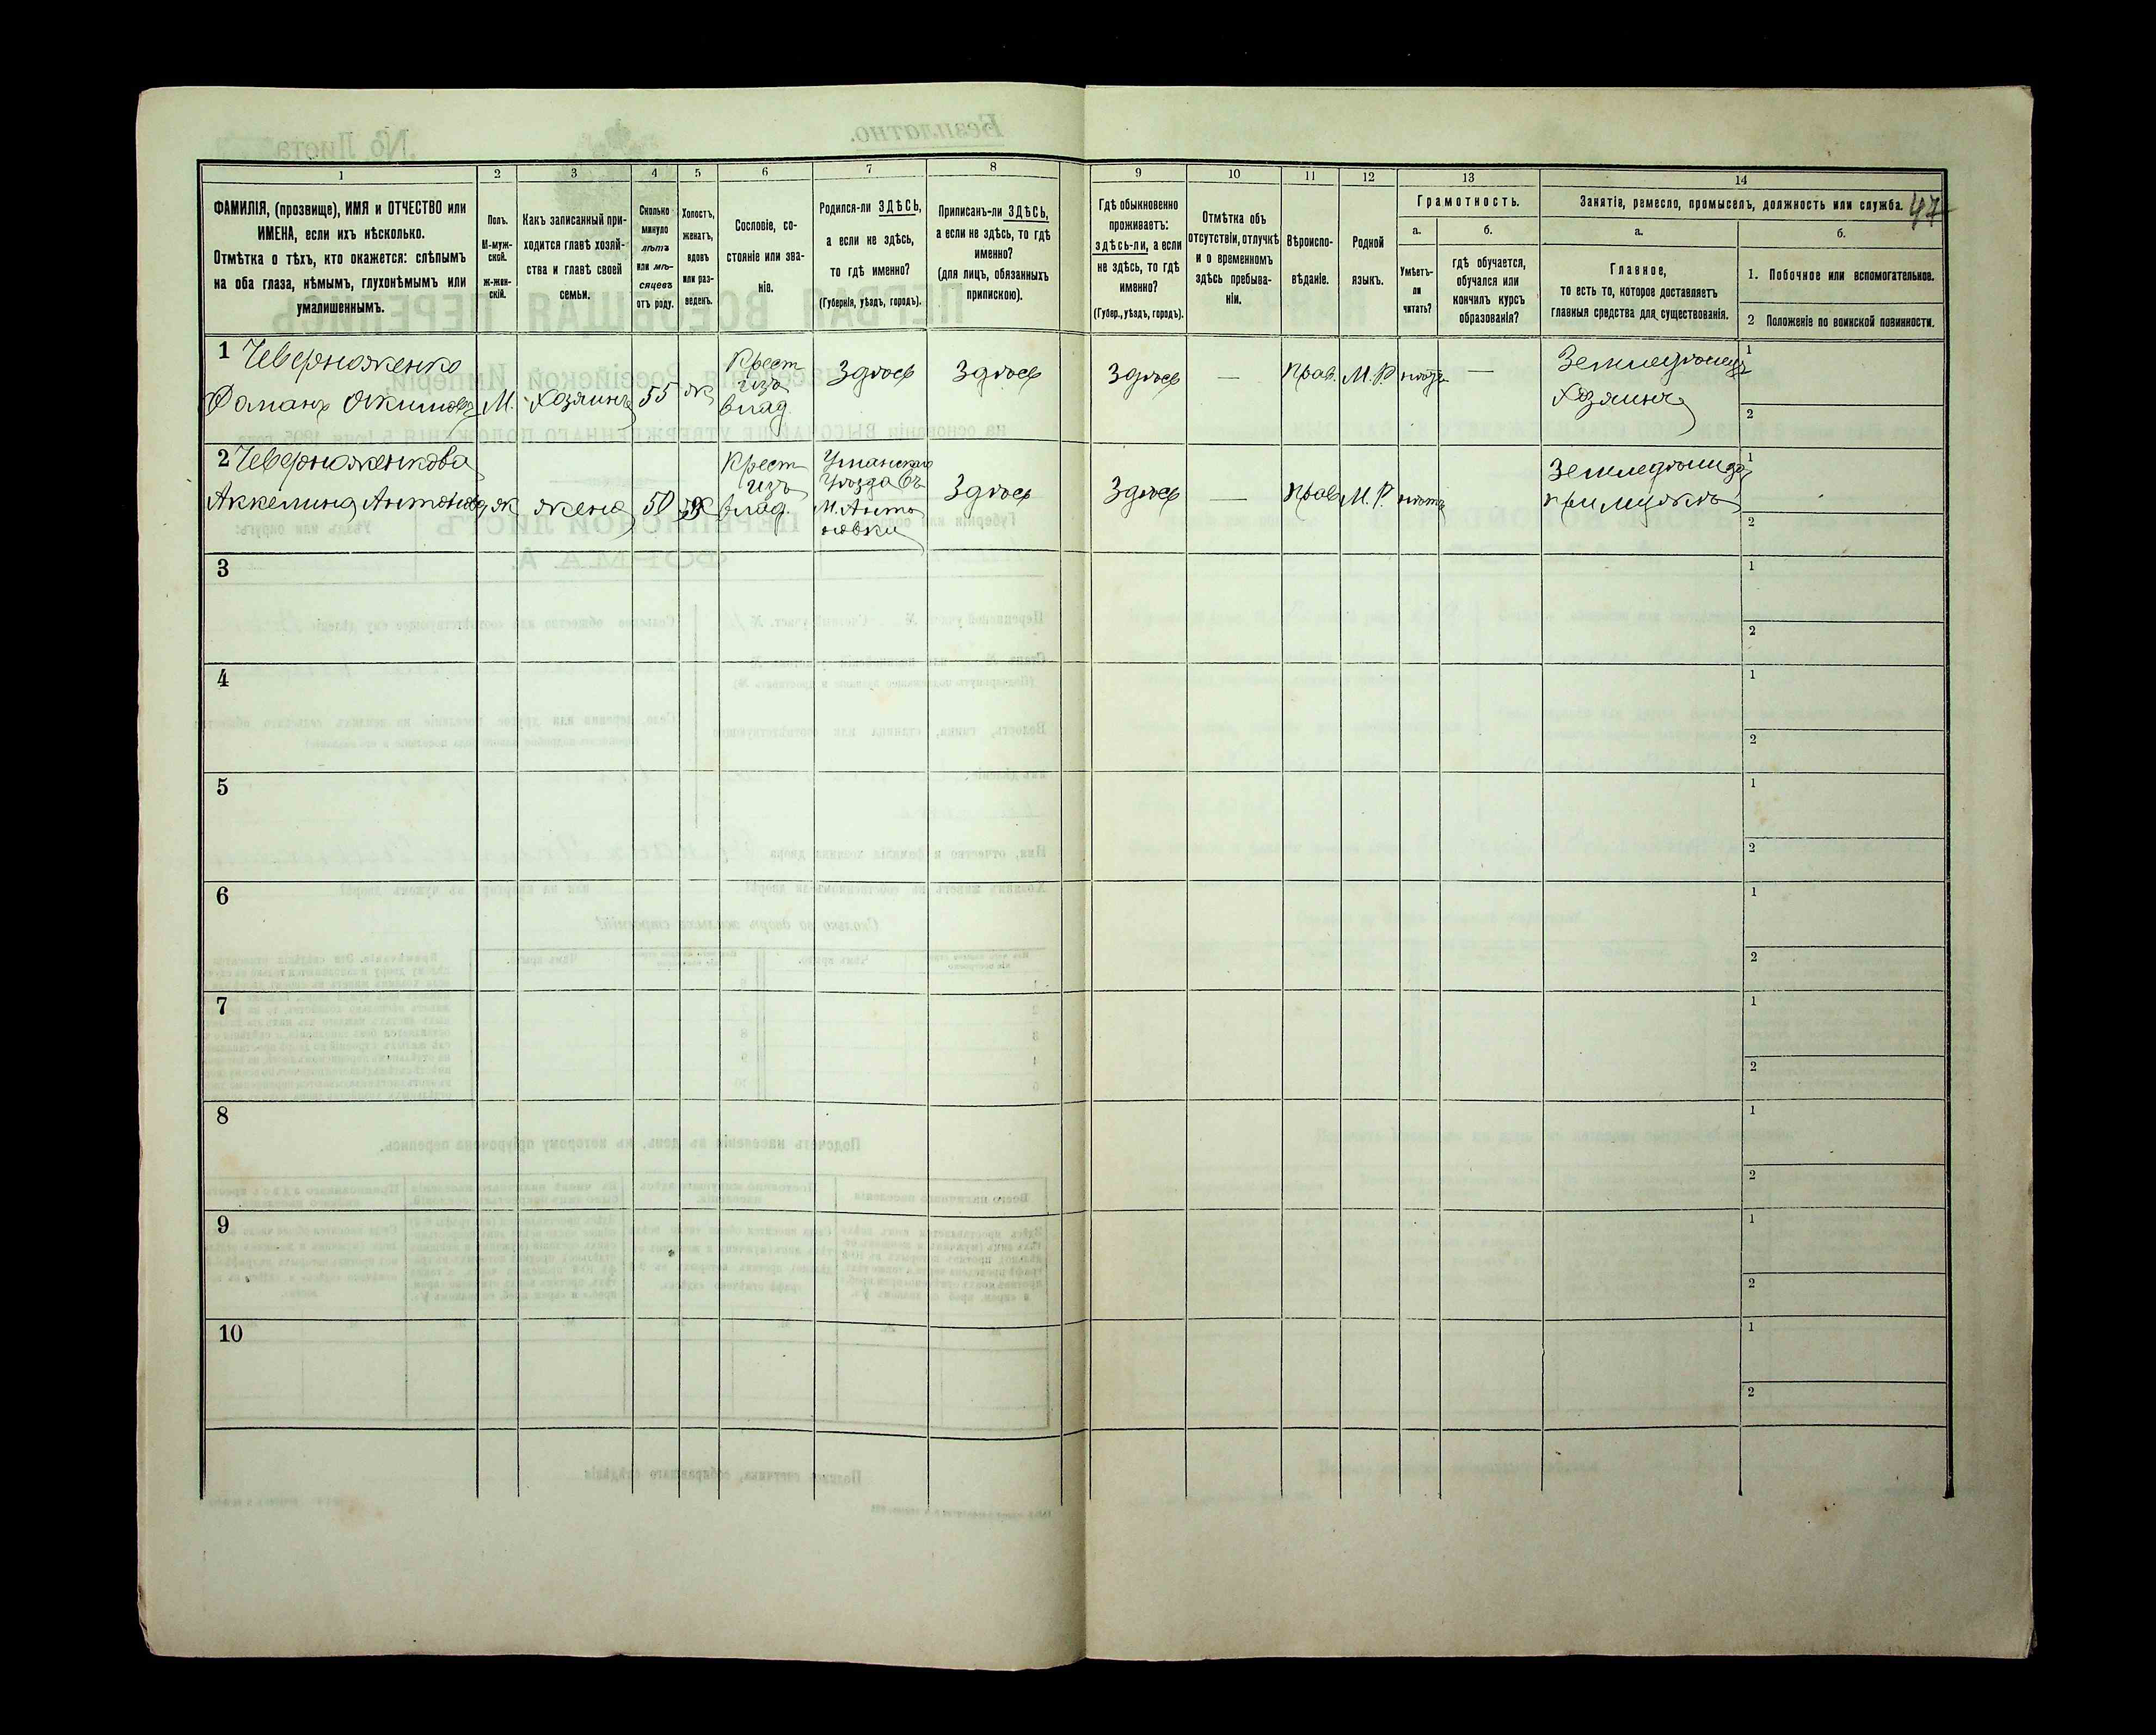 47
1
2
3
4
5
6
7
8
9
10
11
12
13
14
ФАМИЛІЯ, (прозвище), ИМЯ и ОТЧЕСТВО или
ИМЕНА, если ихъ нѣсколько.
Отмѣтка о тѣхъ, кто окажется: слѣпымъ
на оба глаза, нѣмымъ, глухонѣмымъ или
умалишеннымъ.
Полъ.
М-муж-
ской.
ж-жен-
скій.
Какъ записанный при-
ходится главѣ хозяй-
ства и главѣ своей
семьи.
Сколько
минуло
лѣтъ
или мѣ-
сяцевъ
отъ роду.
Холостъ,
женатъ,
вдовъ
или раз-
веденъ.
Сословіе, со-
стояніе или зва-
ніе.
Родился-ли ЗДѢСЬ,
а если не здѣсь,
то гдѣ именно?
(Губернія, уѣздъ, городъ).
Приписанъ-ли ЗДѢСЬ,
а если не здѣсь, то гдѣ
именно?
(для лицъ, обязанныхъ
припискою).
Гдѣ обыкновенно
проживаетъ:
здѣсь-ли, а если
не здѣсь, то гдѣ
именно?
(Губер., уѣздъ, городъ).
Отмѣтка объ
отсутствіи, отлучкѣ
и о временномъ
здѣсь пребыва-
ніи.
Вѣроиспо-
вѣданіе.
Родной
языкъ.
Грамотность.
а.
Умѣетъ-
ли
читать?
б.
гдѣ обучается,
обучался или
кончилъ курсъ
образованія?
Занятіе, ремесло, промыселъ, должность или служба.
а.
Главное,
то есть то, которое доставляетъ
главныя средства для существованія.
б.
1. Побочное или вспомогательное.
2 Положеніе по воинской повинности.
1 Чеверноженко
М.
Хозяинъ
55
ж
Крест
изъ
влад.
Здѣсь
Здѣсь
Здѣсь
—
Прав.
М. Р.
нѣтъ
—
Земледѣлецъ
Хозяинъ
1
2
2 Чеверноженкова
Аккелина Антонова
ж
жена
50
Крест
изъ
влад.
Уманскаго
Уѣзда въ
М. Анто
новки
Здѣсь
Здѣсь
—
Прав
М. Р.
нѣтъ
при мужѣ
1
2
3
1
2
4
1
2
5
1
2
6
1
2
7
1
2
8
1
2
9
1
2
10
1
2